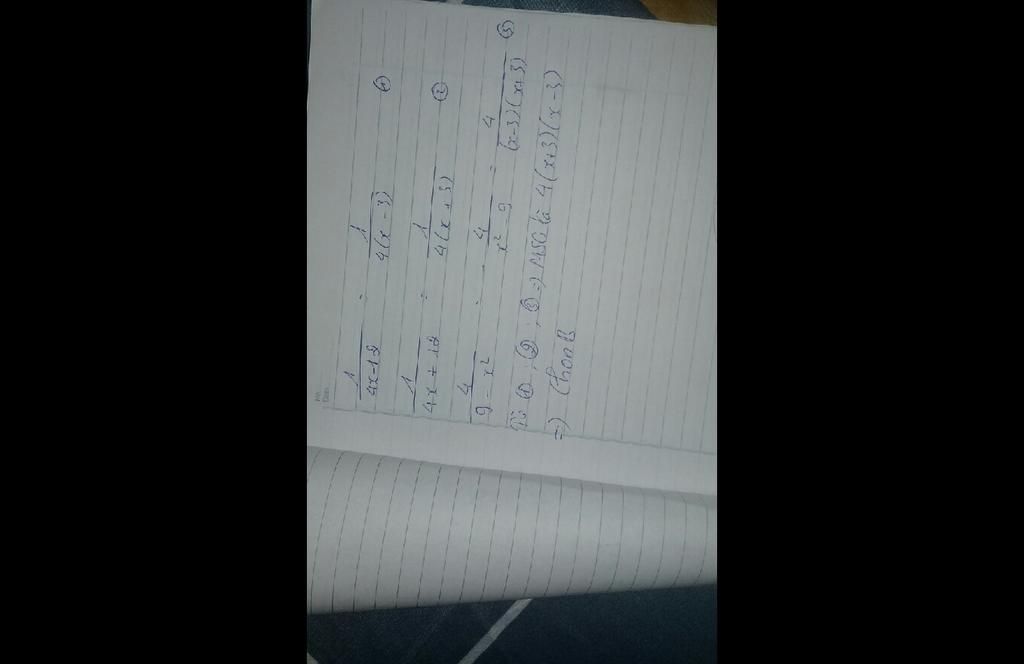 1/(4x-12) = 1/(4(x-3)) ①
1/(4x+12) = 1/(4(x+3)) ②
4/(9-x²) = -4/(x²-9) = 4/((x-3)(x+3)) ③
Từ ①; ②; ③ => MSC là 4(x+3)(x-3)
=) Chọn B